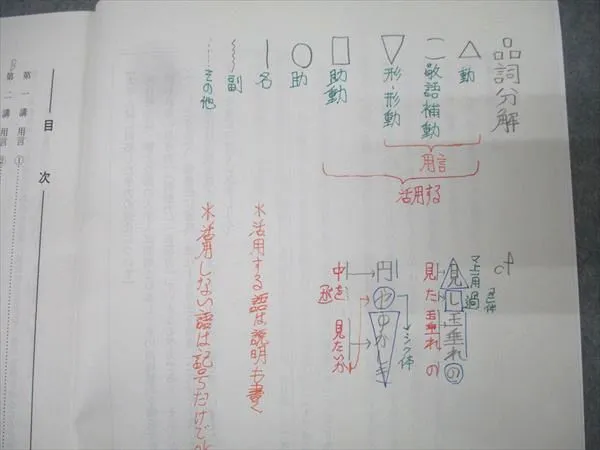 品詞分解
動
敬語補動
形・形動
助動
助
名
副
その他
用言
活用する
＊活用する語は説明も書く
＊活用しない語は記号だけで
cf
マ上用
過
体
見し玉垂れの
見た玉垂れの
内やゆかしき
シク体
中を
見たいか
目次
第一講 用言①
第二講 用言②